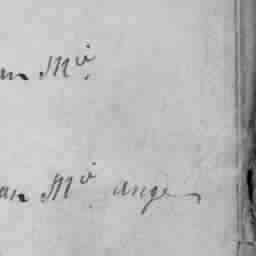 an M.ie
an M.ie ange